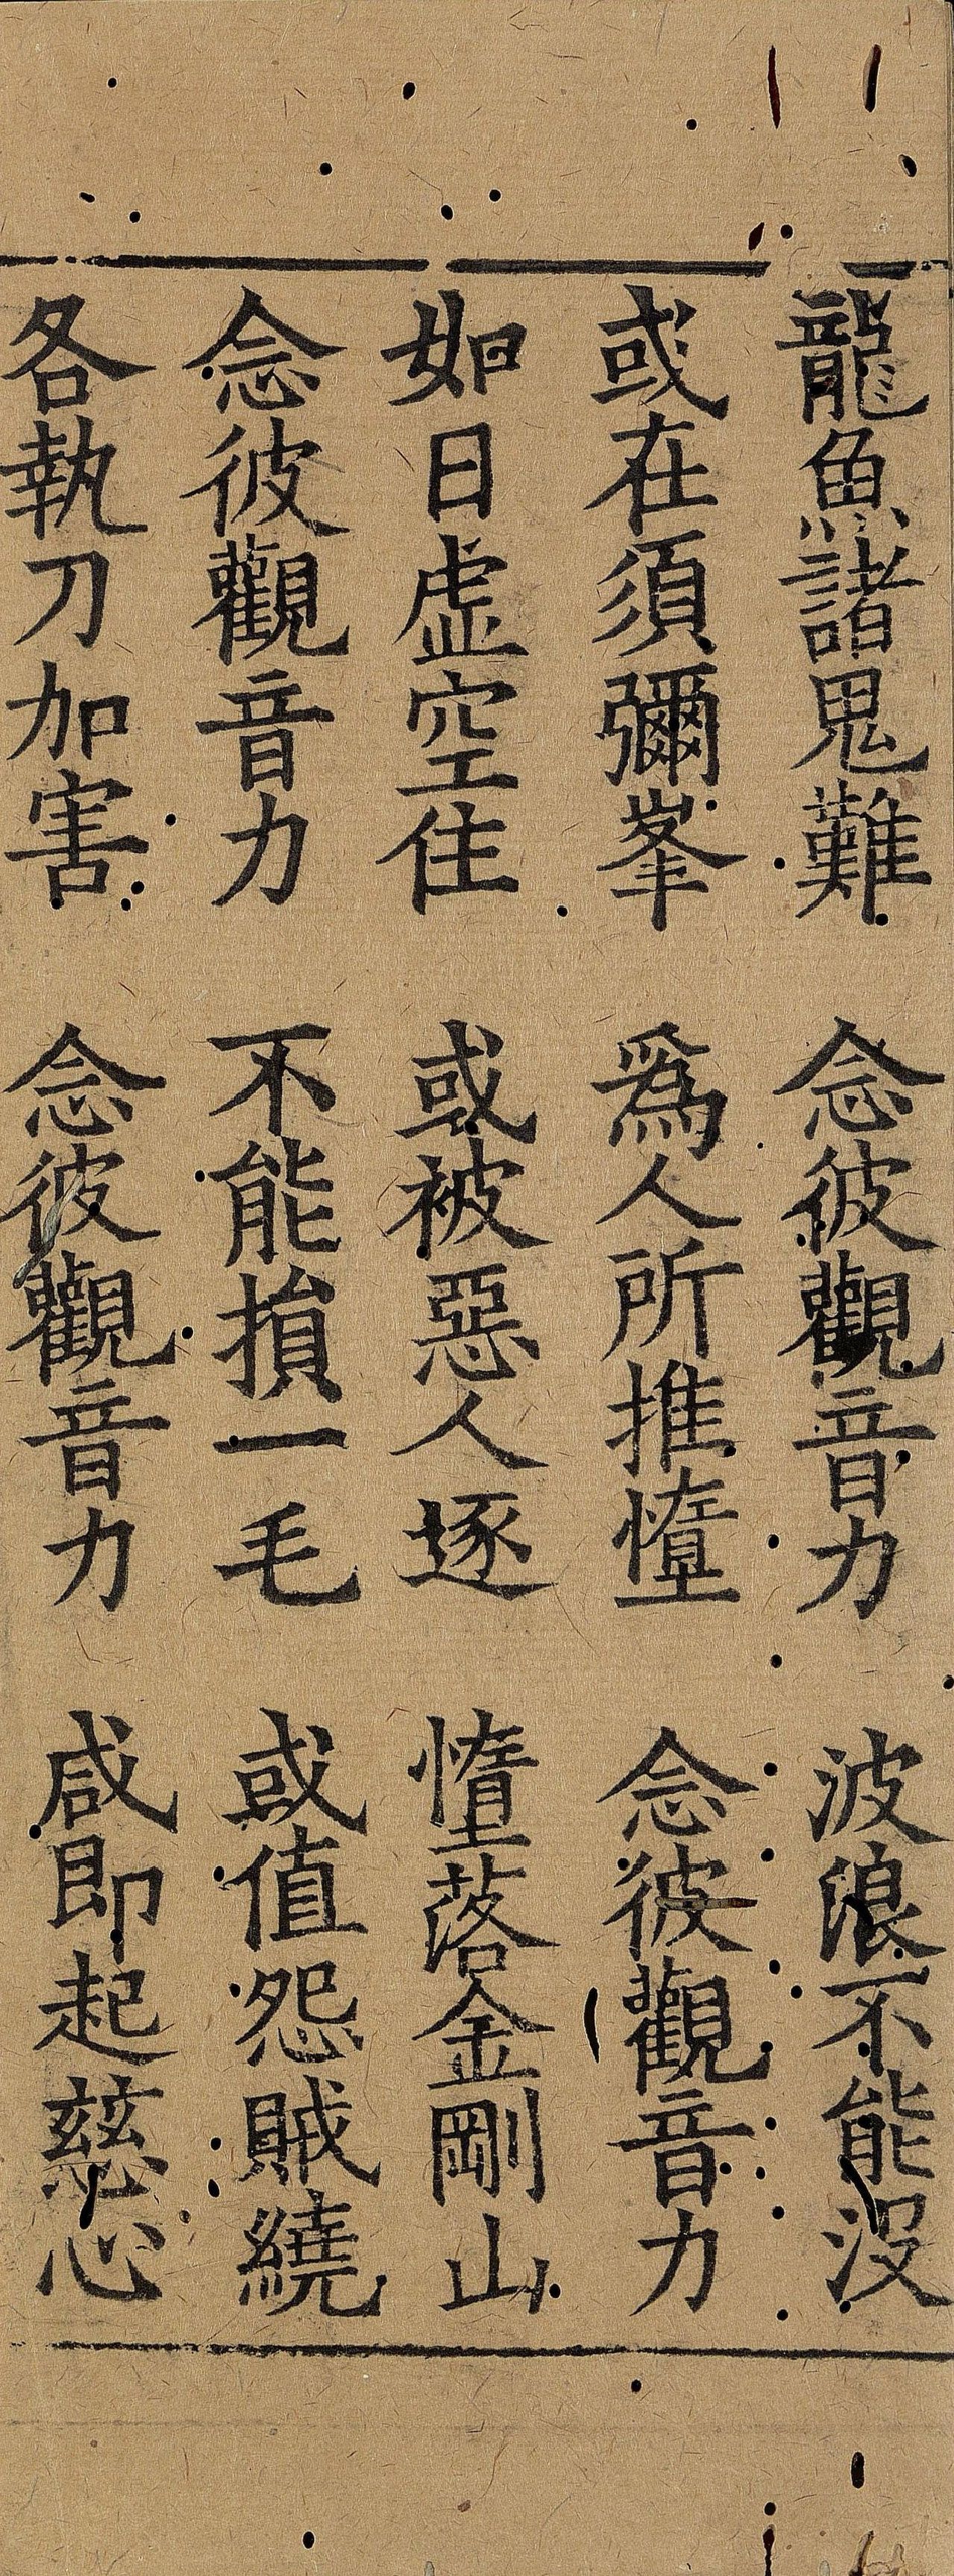 龍魚諸鬼難　念彼觀音力　波浪不能没
或在須彌峯　爲人所推墮　念彼觀音力
如日虛空住　或被惡人逐　墮落金剛山
念彼觀音力　不能損一毛　或值怨賊繞
各執刀加害　念彼觀音力　咸即起慈心